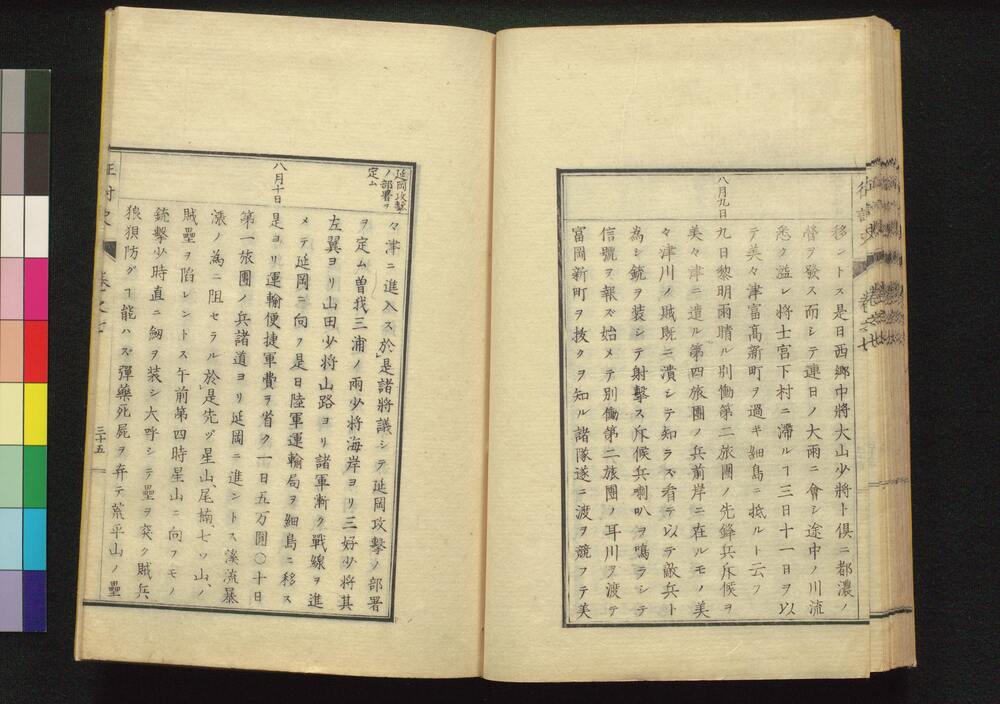 征討史 巻之七
移シトス是日西郷中將大山少將ト倶ニ都濃ノ
營ヲ發ス而シテ連日ノ大雨ニ會シ途中ノ川流
悉ク溢レ將士宮下村ニ滯ルヿ三日十一日ヲ以
テ美々津富髙新町ヲ過キ細島ニ抵ルト云フ
八月九日
九日黎明雨晴ル別働第二旅團ノ先鋒兵斥候ヲ
美々津ニ遣ル第四旅團ノ兵前岸ニ在ルモノ美
々津川ノ賊既ニ潰シテ知ラズ看テ以テ敵兵ト
為シ銃ヲ装シテ射撃ス斥候兵喇叭ヲ鳴ラシテ
信號ヲ報ズ始メテ別働第二旅團ノ耳川ヲ渡テ
富岡新町ヲ抜クヲ知ル諸隊遂ニ渡ヲ競フテ美
延岡攻撃
ノ部署ヲ
定ム
々津ニ進入ス於是諸將議シテ延岡攻撃ノ部署
ヲ定ム曽我三浦ノ兩少將海岸ヨリ三好少將其
左翼ヨリ山田少將山路ヨリ諸軍漸ク戰線ヲ進
メテ延岡ニ向フ是日陸軍運輸局ヲ細島ニ移ス
八月十日
是ヨリ運輸便捷軍費ヲ省ク一日五万圓〇十日
第一旅團ノ兵諸道ヨリ延岡ニ進ントス溪流暴
漲ノ為ニ阻セラル於是先ヅ星山、尾楠、七ツ山、ノ
賊壘ヲ陷レントス午前第四時星山ニ向フモノ
銃撃少時直ニ劔ヲ装シ大呼シテ壘ヲ突ク賊兵、
狼狽防グヿ能ハズ彈藥死屍ヲ弃テ荒平山ノ壘
征討史
巻之七
三十五